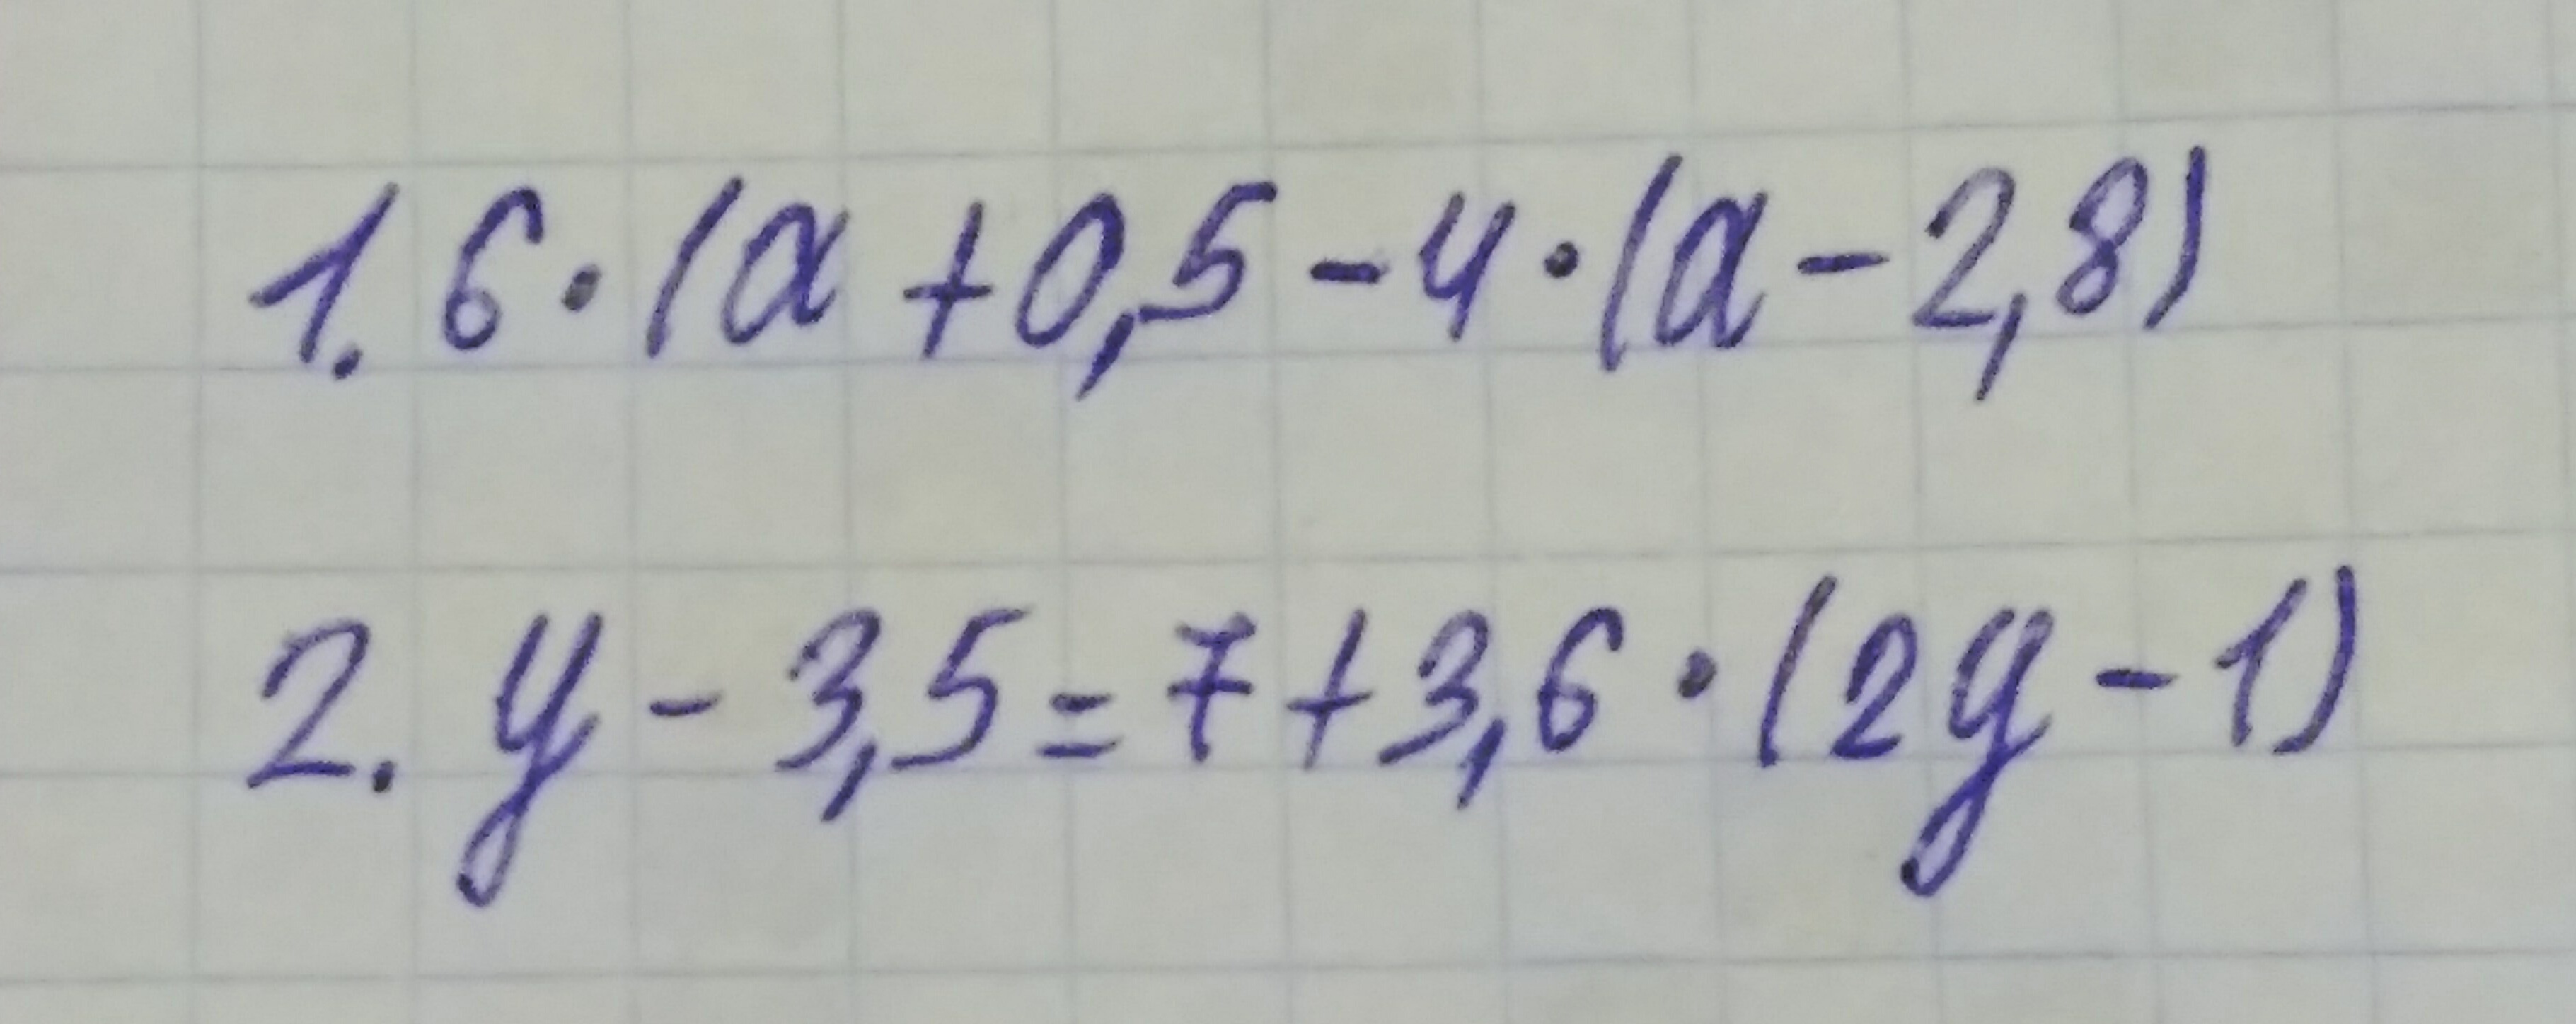 1. 6·(a+0,5-4·(a-2,8)
2. y-3,5=7+3,6·(2y-1)